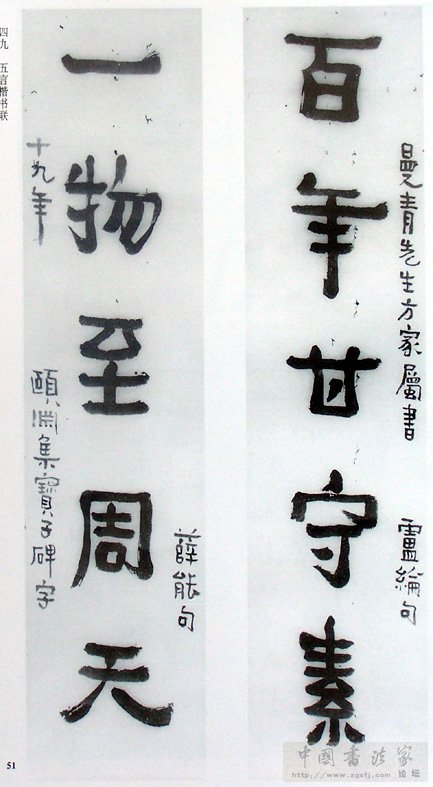 曼青先生方家屬書
百年甘守素
盧綸句
薛能句
一物至周天
十九年
頤淵集寶子碑字
四九 五言楷书联
51
中国书法家
论坛
http://www.zgsfj.com